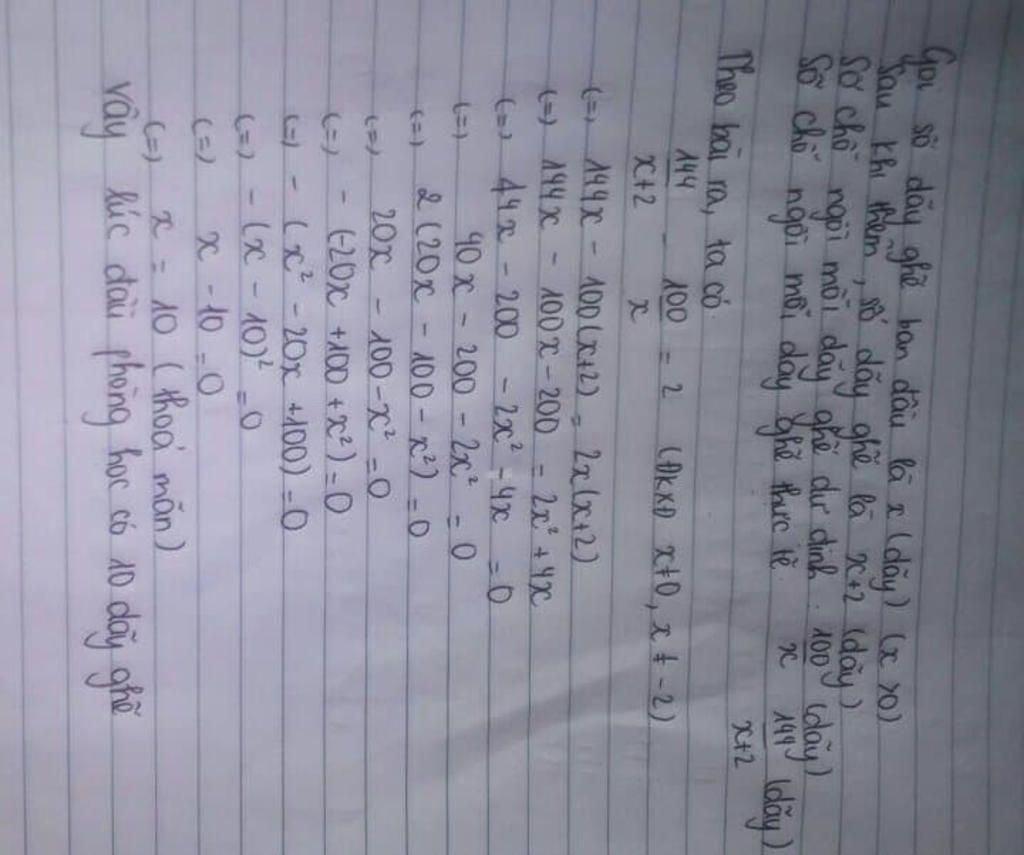 Gọi số dãy ghế ban đầu là x (dãy) (x>0)
Sau khi thêm, số dãy ghế là x+2 (dãy)
Số chỗ ngồi mỗi dãy ghế dự định: 100/x (dãy)
Số chỗ ngồi mỗi dãy ghế thực tế 144/x+2 (dãy)
Theo bài ra, ta có
144/x+2 - 100/x = 2 (ĐKXĐ x≠0, x≠-2)
(=) 144x - 100(x+2) = 2x(x+2)
(=) 144x - 100x - 200 = 2x² + 4x
(=) 44x - 200 - 2x² - 4x = 0
(=) 40x - 200 - 2x² = 0
(=) 2(20x - 100 - x²) = 0
(=) 20x - 100 - x² = 0
(=) - (-20x + 100 + x²) = 0
(=) - (x² - 20x + 100) = 0
(=) - (x - 10)² = 0
(=) x - 10 = 0
(=) x = 10 (thoả mãn)
Vậy lúc đầu phòng học có 10 dãy ghế